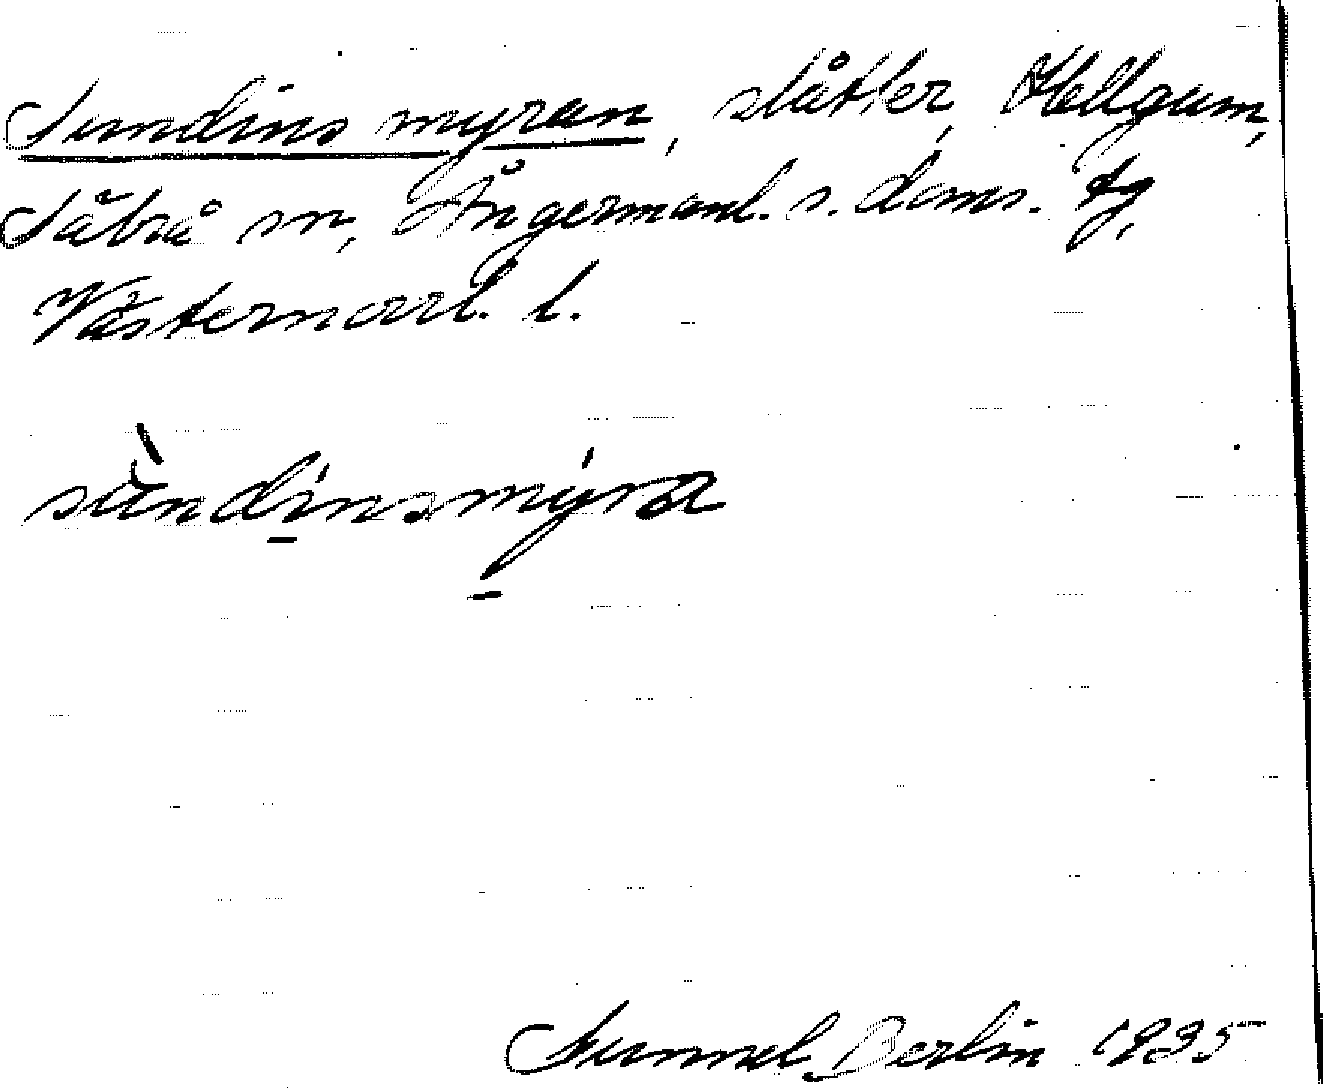 Sundinsmyran, slåtter, Hellgum,
Säbrå sn, Ångermanl. s. doms. tg,
Västernorrl. l.
sùndinsmýra
Gunnel Berlin 1935